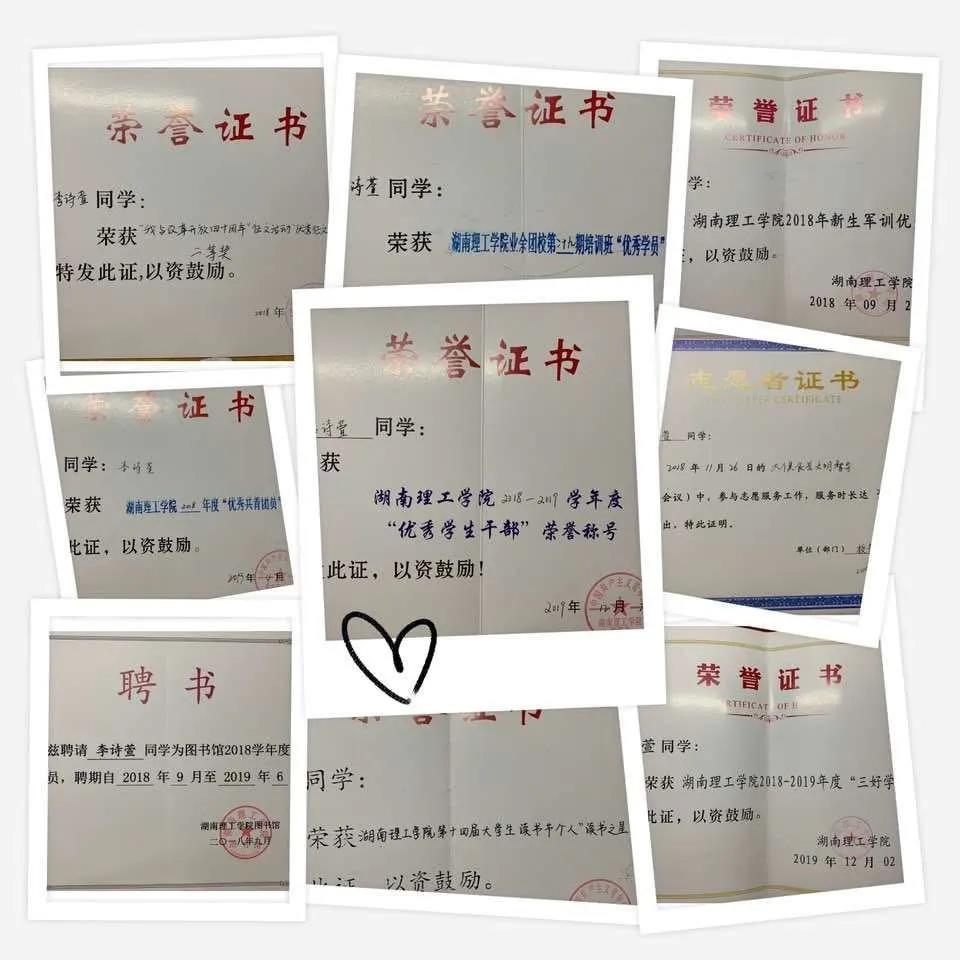 荣誉证书
李诗萱 同学：
荣获"我与改革开放四十周年"征文活动"优秀征文
二等奖
特发此证，以资鼓励。
2018 年
荣誉证书
诗萱 同学：
荣获 湖南理工学院业余团校第三十九期培训班"优秀学员"
荣誉证书
CERTIFICATE OF HONOR
学：
湖南理工学院2018年新生军训优
，以资鼓励。
湖南理工学院
2018 年 09 月 2
荣誉证书
同学：李诗萱
荣获 湖南理工学院 2018 年度"优秀共青团员"
此证，以资鼓励。
2019年 4 月
荣誉证书
诗萱 同学：
获
湖南理工学院 2018-2019 学年度
"优秀学生干部"荣誉称号
此证，以资鼓励！
2019 年 12 月
志愿者证书
CERTIFICATE
萱 同学：
2018 年 11 月 26 日的
会议）中，参与志愿服务工作，服务时长达
出，特此证明。
单位（部门）
聘书
兹聘请 李诗萱 同学为图书馆2018学年度
员，聘期自 2018 年 9 月至 2019 年 6
湖南理工学院图书馆
二〇一八年九月
荣誉证书
同学：
荣获湖南理工学院第十四届大学生读书节个人"读书之星
此证，以资鼓励。
荣誉证书
CERTIFICATE OF HONOR
萱 同学：
荣获 湖南理工学院2018-2019年度"三好学
此证，以资鼓励。
湖南理工学院
2019 年 12 月 02